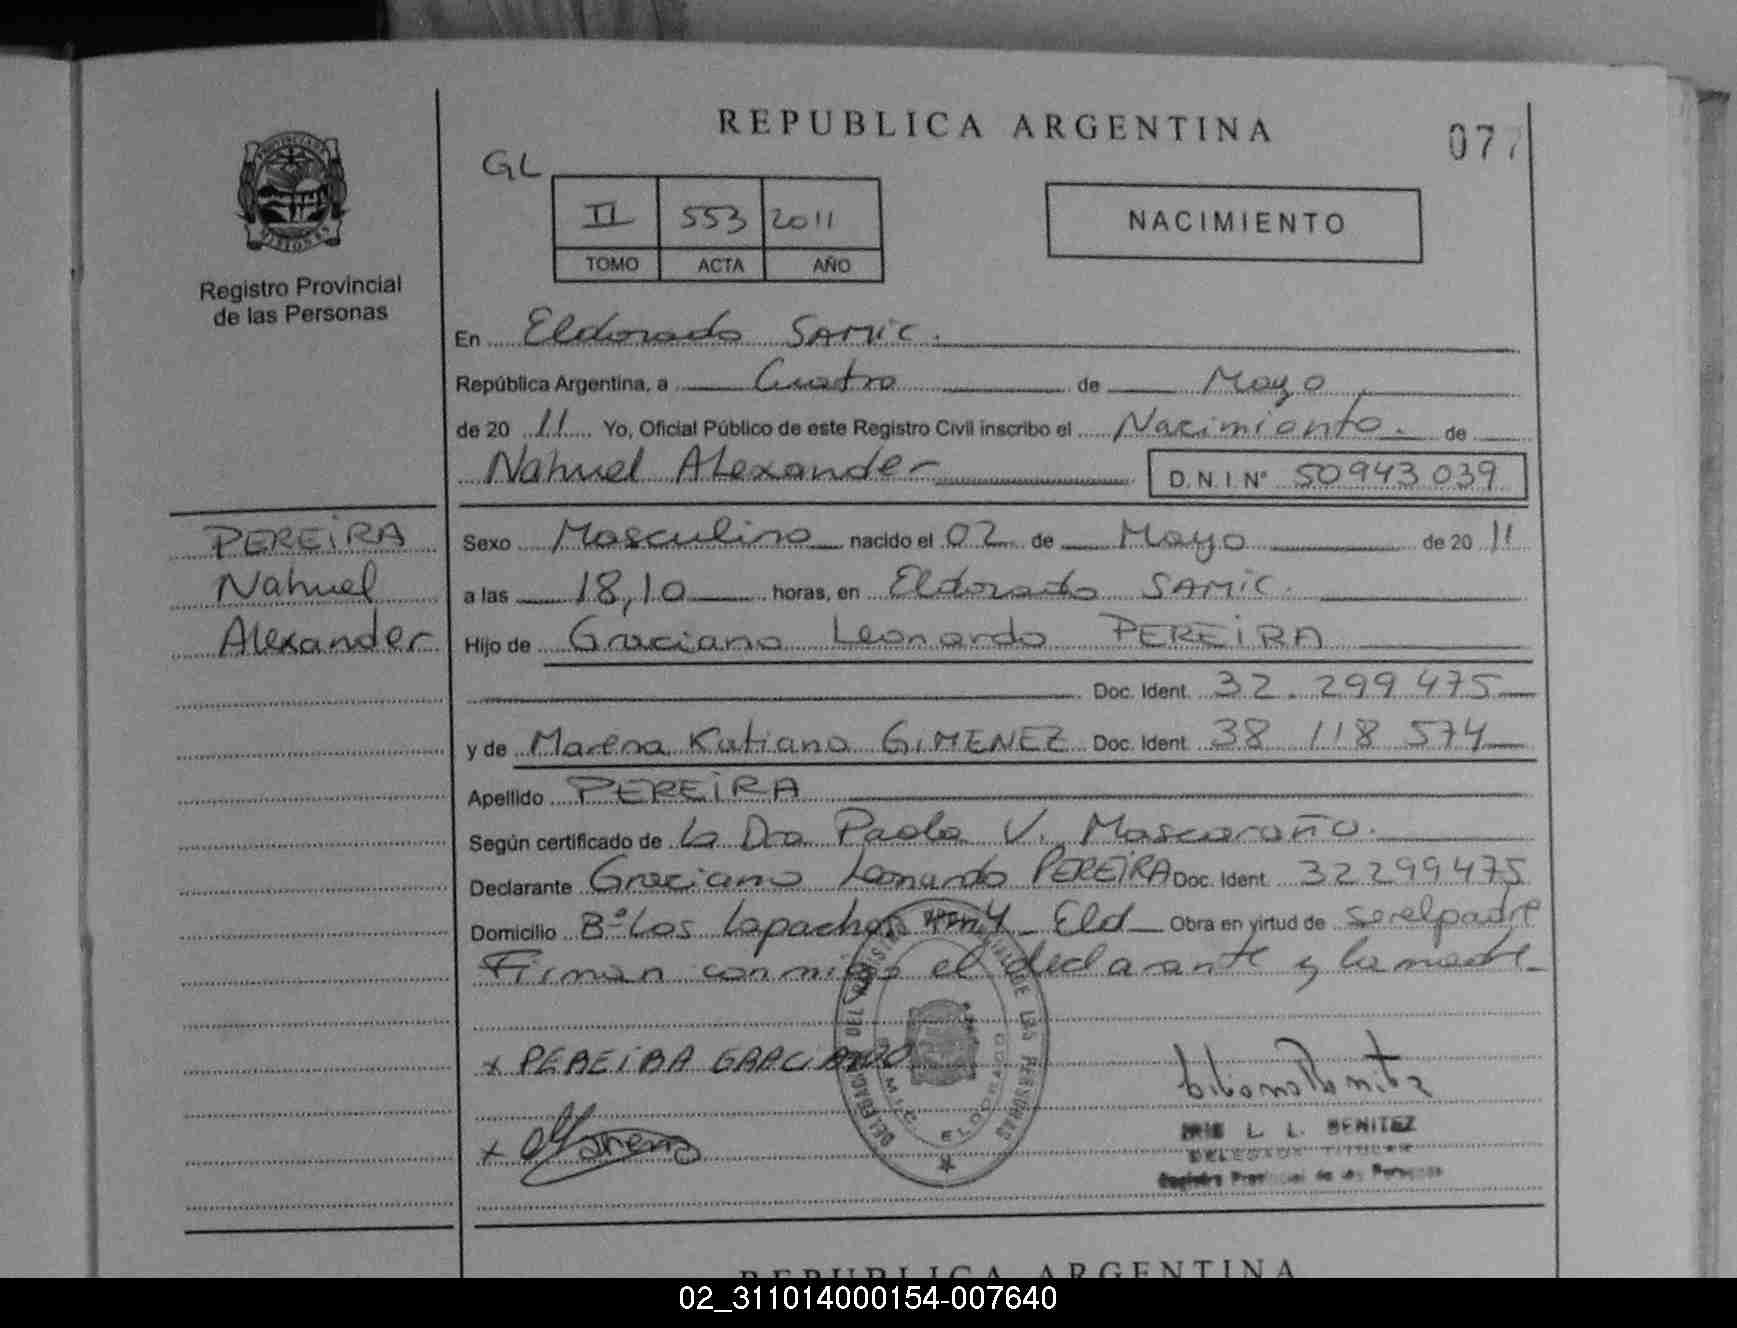 REPUBLICA ARGENTINA
077
GL
II 553 2011
TOMO ACTA AÑO
NACIMIENTO
PROVINCIA DE
MISIONES
Registro Provincial
de las Personas
En Eldorado SAMIC.
República Argentina, a Cuatro de Mayo
de 20 11 Yo, Oficial Público de este Registro Civil inscribo el Nacimiento. de
Nahuel Alexander D.N.I.Nº 50943039
PEREIRA
Nahuel
Alexander
Sexo Masculino nacido el 02 de Mayo de 20 11
a las 18,10 horas, en Eldorado SAMIC.
Hijo de Graciano Leonardo PEREIRA
Doc. Ident. 32.299475
y de Marena Katiana GIMENEZ Doc. Ident. 38 118 574
Apellido PEREIRA
Según certificado de la Dra Paola V. Mascaraño.
Declarante Graciano Leonardo PEREIRA Doc. Ident. 32299475
Domicilio Bº Los Lapachos Eld Obra en virtud de ser el padre
Firman conmigo el declarante y la madre
x PEREIRA GRACIANO
x Marena
DELEGACION DEL REGISTRO PROVINCIAL DE LAS PERSONAS
SAMIC ELDORADO
IRIS L. L. BENITEZ
DELEGADA TITULAR
Registro Provincial de las Personas
REPUBLICA ARGENTINA
02_311014000154-007640